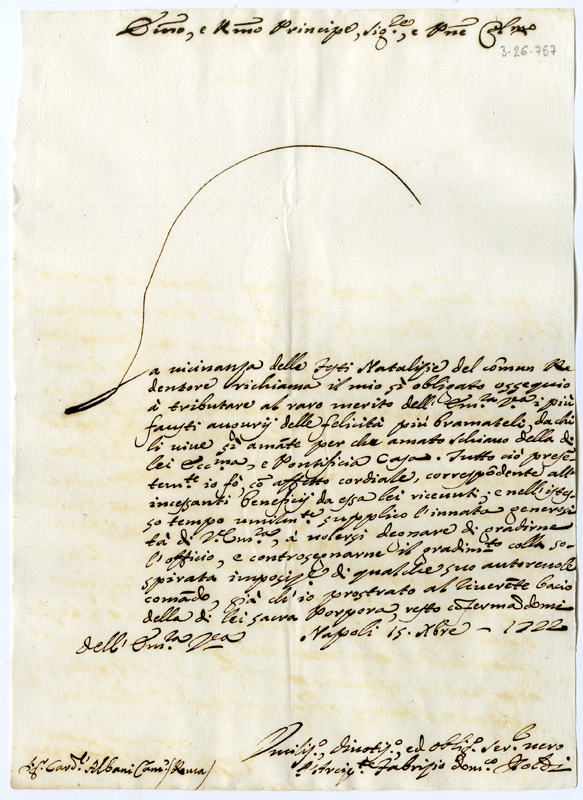 Emo, e Rmo Principe, Sig.re, e Pne Colmo
3-26-757
La vicinanza delle Feste Natalizie del comun Re
dentore richiama il mio sì obligato ossequio
à tributare al raro merito dell' Em.za V.ra i più
fausti augurij delle felicità più bramateli, da chi
li vive sì amante per che amato schiavo della di
lei Ecc.ma, e Pontificia Casa. Tutto ciò presen
tem.te io fò, cõ affetto cordiale, correspõdente all'
incessanti beneficij da essa lei ricevuti; e nell'istes
so tempo umilm.te supplico l'innata generosi
tà di V. Em.za, à volersi degnare di gradirne
l'officio, e controsegnarne il gradim.to colla so-
spirata imposiz.e di qualche suo autorevole
comãdo, già ch'io prostrato al riverẽte bacio
della di lei sacra Porpora, resto cõfermãdomi
dell' Em.za V.ra Napoli 15. Xbre - 1722
Umiliss.o, divotiss.o, ed oblig.o ser.e vero
S.r Card.l Albani Cam.(Roma) l'Arcip.te Fabrizio dom.o